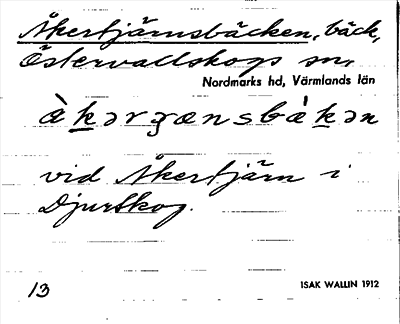 Åkertjärnsbäcken, bäck,
Östervallskogs sn,
Nordmarks hd, Värmlands län
vid Åkertjärn i
Djurskog.
13
ISAK WALLIN 1912